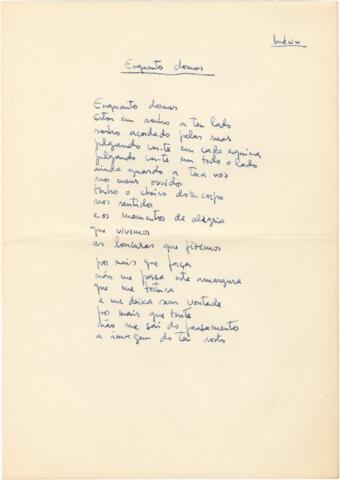 Inédito
Enquanto dormes
Enquanto dormes
estou em sonho a teu lado
sonho acordado pelas ruas
julgando ver-te em cada esquina
julgando ver-te em todo o lado
ainda guardo a tua voz
nos meus ouvidos
tenho o cheiro do teu corpo
nos sentidos
e os momentos de alegria
que vivemos
as loucuras que fizemos
por mais que faça
não me passa esta amargura
que me tortura
e me deixa sem vontade
por mais que tente
não me sai do pensamento
a imagem do teu rosto